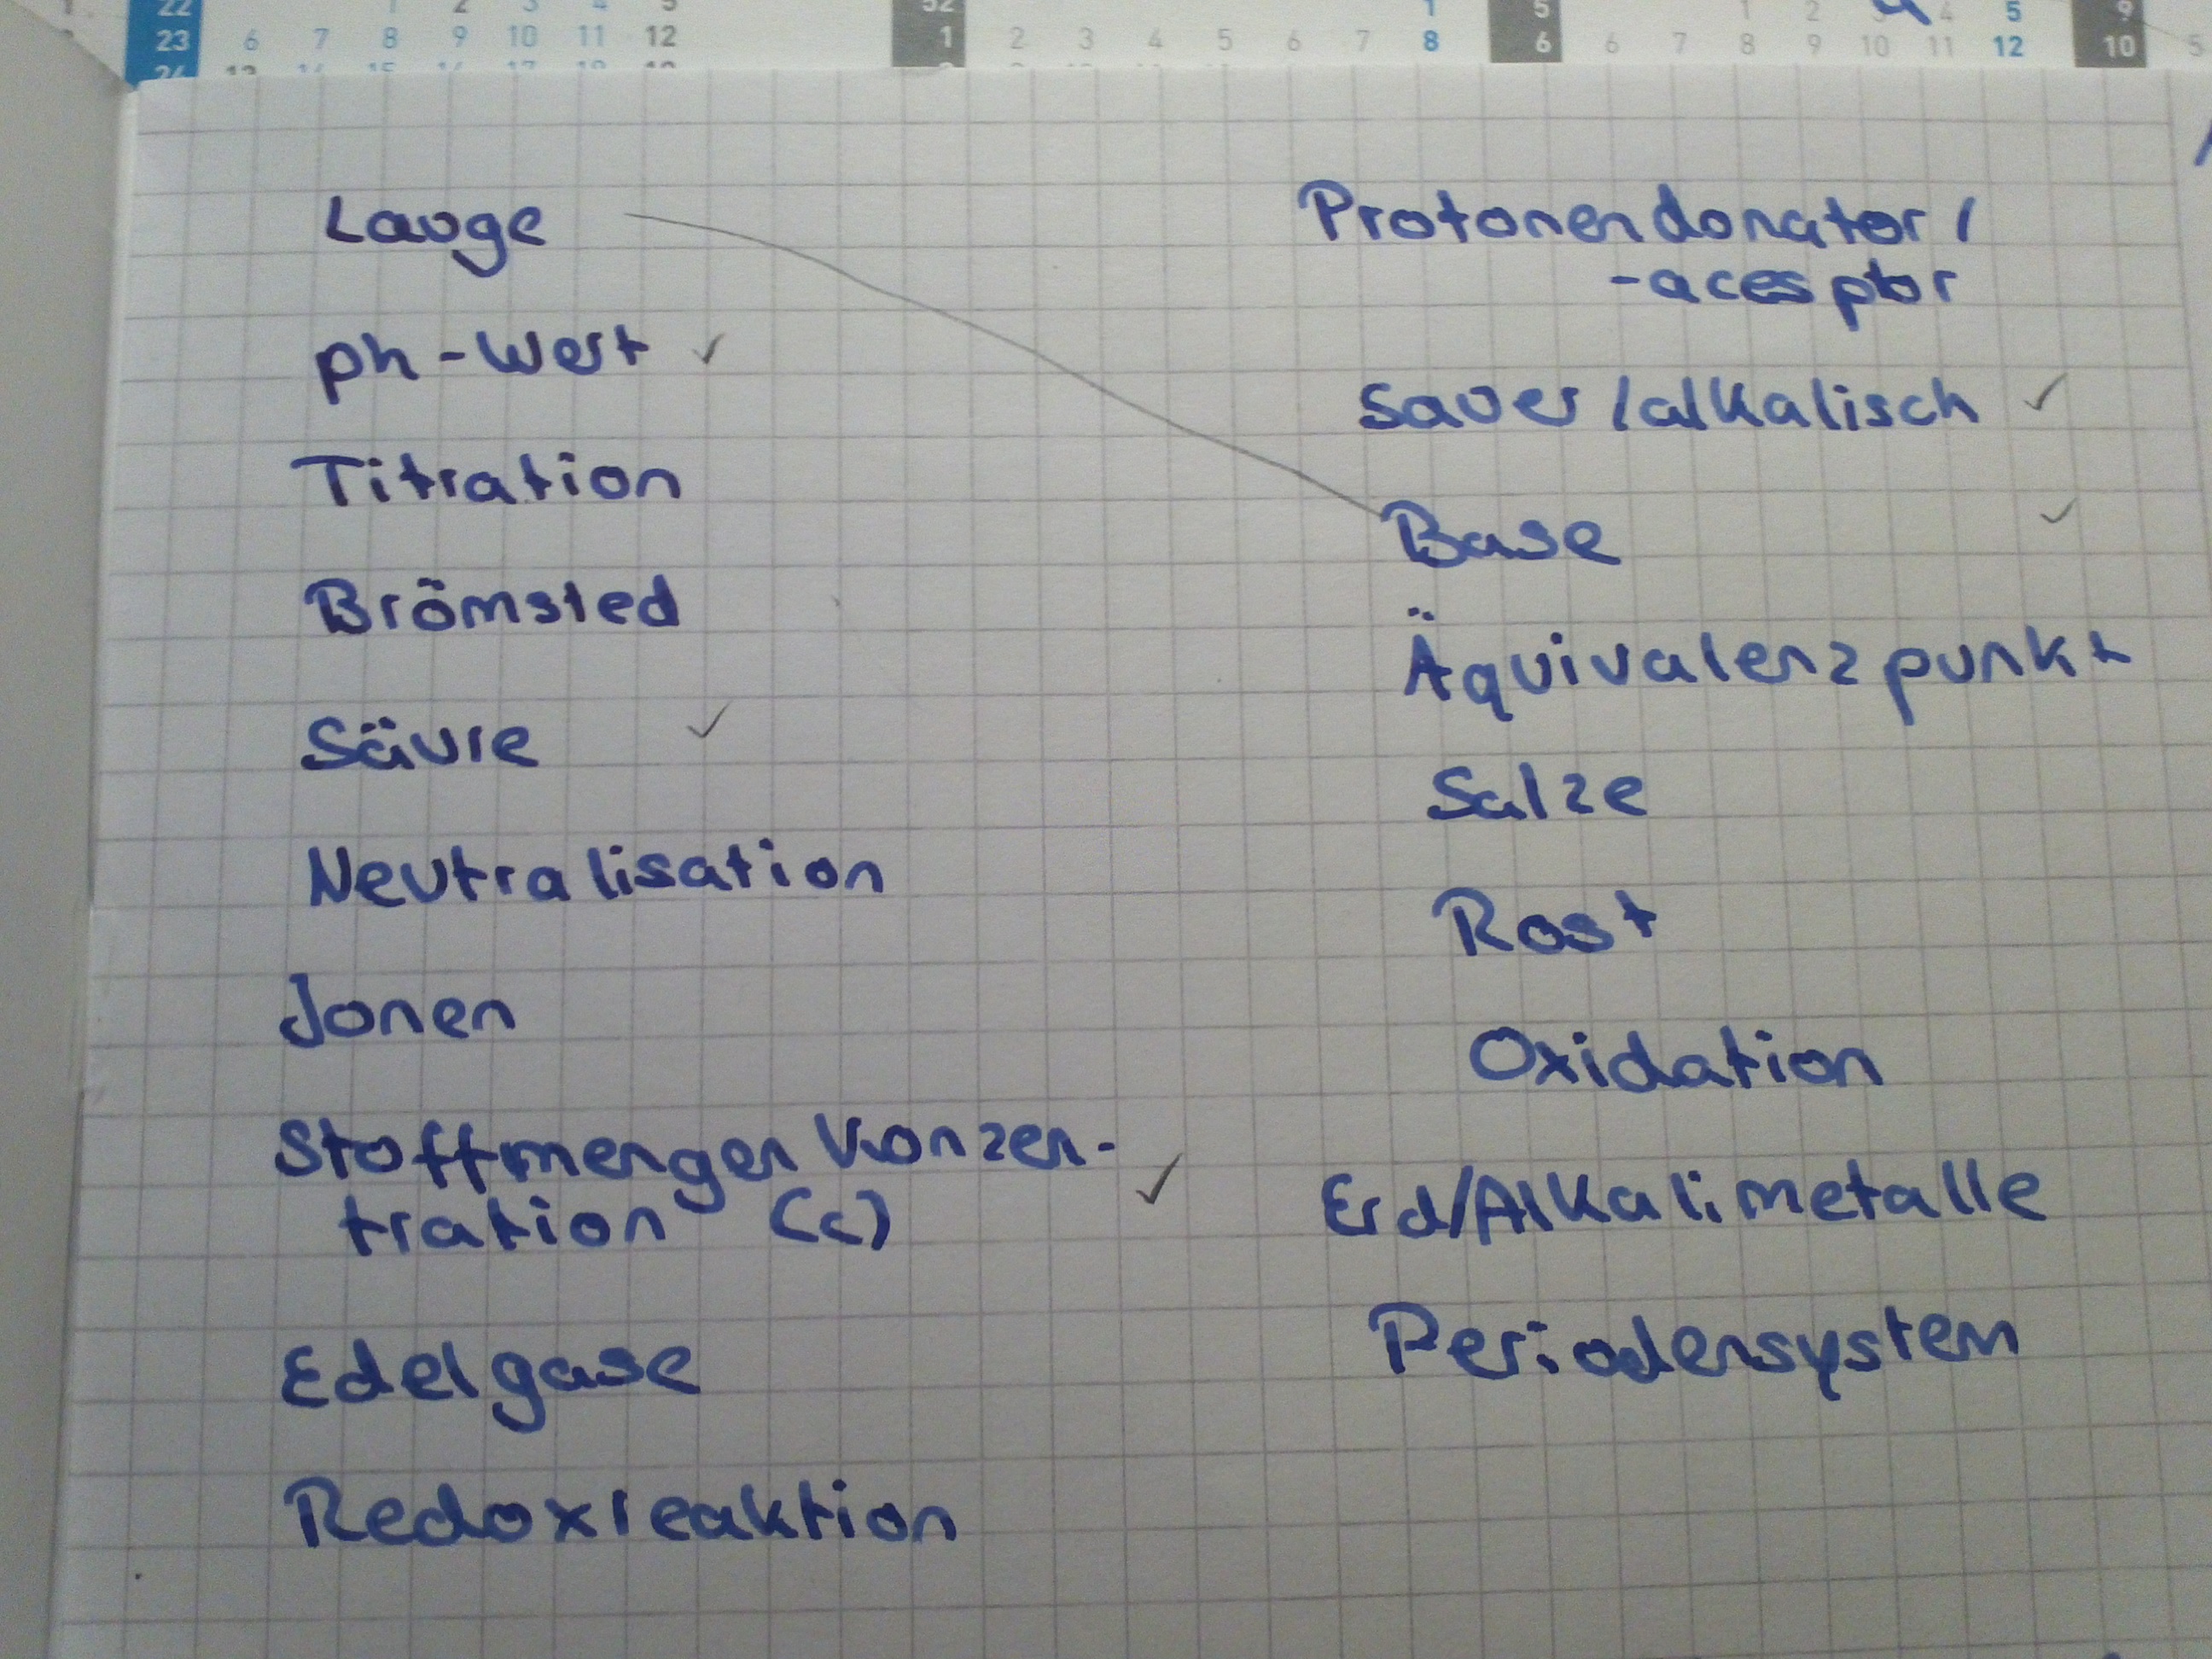 22 1 2 3 4 5 52 1 5 1 2 3 4 5 9
23 6 7 8 9 10 11 12 1 2 3 4 5 6 7 8 6 6 7 8 9 10 11 12 10 5
24
Lauge
ph-Wert ✓
Titration
Brömsted
Säure ✓
Neutralisation
Jonen
Stoffmengen Konzen-
tration (c) ✓
Edelgase
Redoxreaktion
Protonendonator /
-acesptor
sauer/alkalisch ✓
Base ✓
Äquivalenzpunkt
Salze
Rost
Oxidation
Erd/Alkalimetalle
Periodensystem